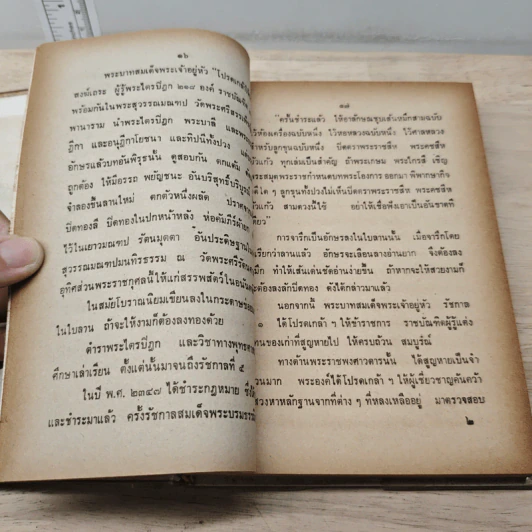 ๑๖
พระบาทสมเด็จพระเจ้าอยู่หัว "โปรดเกล้า
สงฆ์เถระ ผู้รู้พระไตรปิฎก ๒๑๘ องค์ ราชบัณฑิต
พร้อมกันในพระสุวรรณมณฑป วัดพระศรีสรรเพ
พานาราม นำพระไตรปิฎก พระบาลี และพระ
ฎีกา และอนุฎีกาโยชนา และทีปนีทั้งปวง
อักษรแล้วบทอันพิรุธนั้น ดูสอบกัน ตกแต้ม
ถูกต้อง ให้มีอรรถ พยัญชนะ อันบริสุทธิ์บริบูรณ์
จำลองขึ้นลานใหม่ ตกตัวหนึ่งผลัด ปรา
ปิดทองสี ปิดทองในปกหน้าหลัง ห่อคัมภีร์ผ้า
ไว้ในเยาวมณฑป รัตนมุตตา อันประดิษฐาน
สุวรรณมณฑปมนทิรธรรม ณ วัดพระศรีรัตน
อุทิศส่วนพระราชกุศลนี้ให้แก่สรรพสัตว์ใน
ในสมัยโบราณนิยมเขียนลงในกระดาษ
ในใบลาน ถ้าจะให้งามก็ต้องลงทองด้วย
ตำราพระไตรปิฎก และวิชาทางพุทธ
ศึกษาเล่าเรียน ตั้งแต่นั้นมาจนถึงรัชกาลที่ ๕
ในปี พ.ศ. ๒๓๔๗ ได้ชำระกฎหมาย ซึ่ง
และชำระมาแล้ว ครั้งรัชกาลสมเด็จพระบรม
๑๗
"ครั้นชำระแล้ว ให้อาลักษณชุบเส้นหมึกสามฉบับ
ไว้ห้องเครื่องฉบับหนึ่ง ไว้หอหลวงฉบับหนึ่ง ไว้ศาลหลวง
สำหรับลูกขุนฉบับหนึ่ง ปิดตราพระราชสีห พระคชสีห
บัวแก้ว ทุกเล่มเป็นสำคัญ ถ้าพระเกษม พระไกรสี เชิญ
พระสมุดพระราชกำหนดบทพระอัยการ ออกมา พิพากษากิจ
คดีใด ๆ ลูกขุนทั้งปวงไม่เห็นปิดตราพระราชสีห พระคชสีห
บัวแก้ว สามดวงนี้ไซ้ อย่าให้เชื่อฟังเอาเป็นอันขาดที
เดียว"
การจารึกเป็นอักษรลงในใบลานนั้น เมื่อจารึกโดย
เรียกว่าลานแล้ว อักษรจะเลือนลางอ่านยาก จึงต้องลง
หมึก ทำให้เส้นเด่นชัดอ่านง่ายขึ้น ถ้าหากจะให้สวยงามก็
จะต้องลงสักปิดทอง ดังได้กล่าวมาแล้ว
นอกจากนี้ พระบาทสมเด็จพระเจ้าอยู่หัว รัชกาล
๑ ได้โปรดเกล้า ๆ ให้ข้าราชการ ราชบัณฑิตผู้รู้แต่ง
ของเก่าที่สูญหายไป ให้ครบถ้วน สมบูรณ์
ทางด้านพระราชพงศาวดารนั้น ได้สูญหายเป็นจำ
นวนมาก พระองค์ได้โปรดเกล้า ๆ ให้ผู้เชี่ยวชาญค้นคว้า
แสวงหาหลักฐานจากที่ต่าง ๆ ที่หลงเหลืออยู่ มาตรวจสอบ
๒